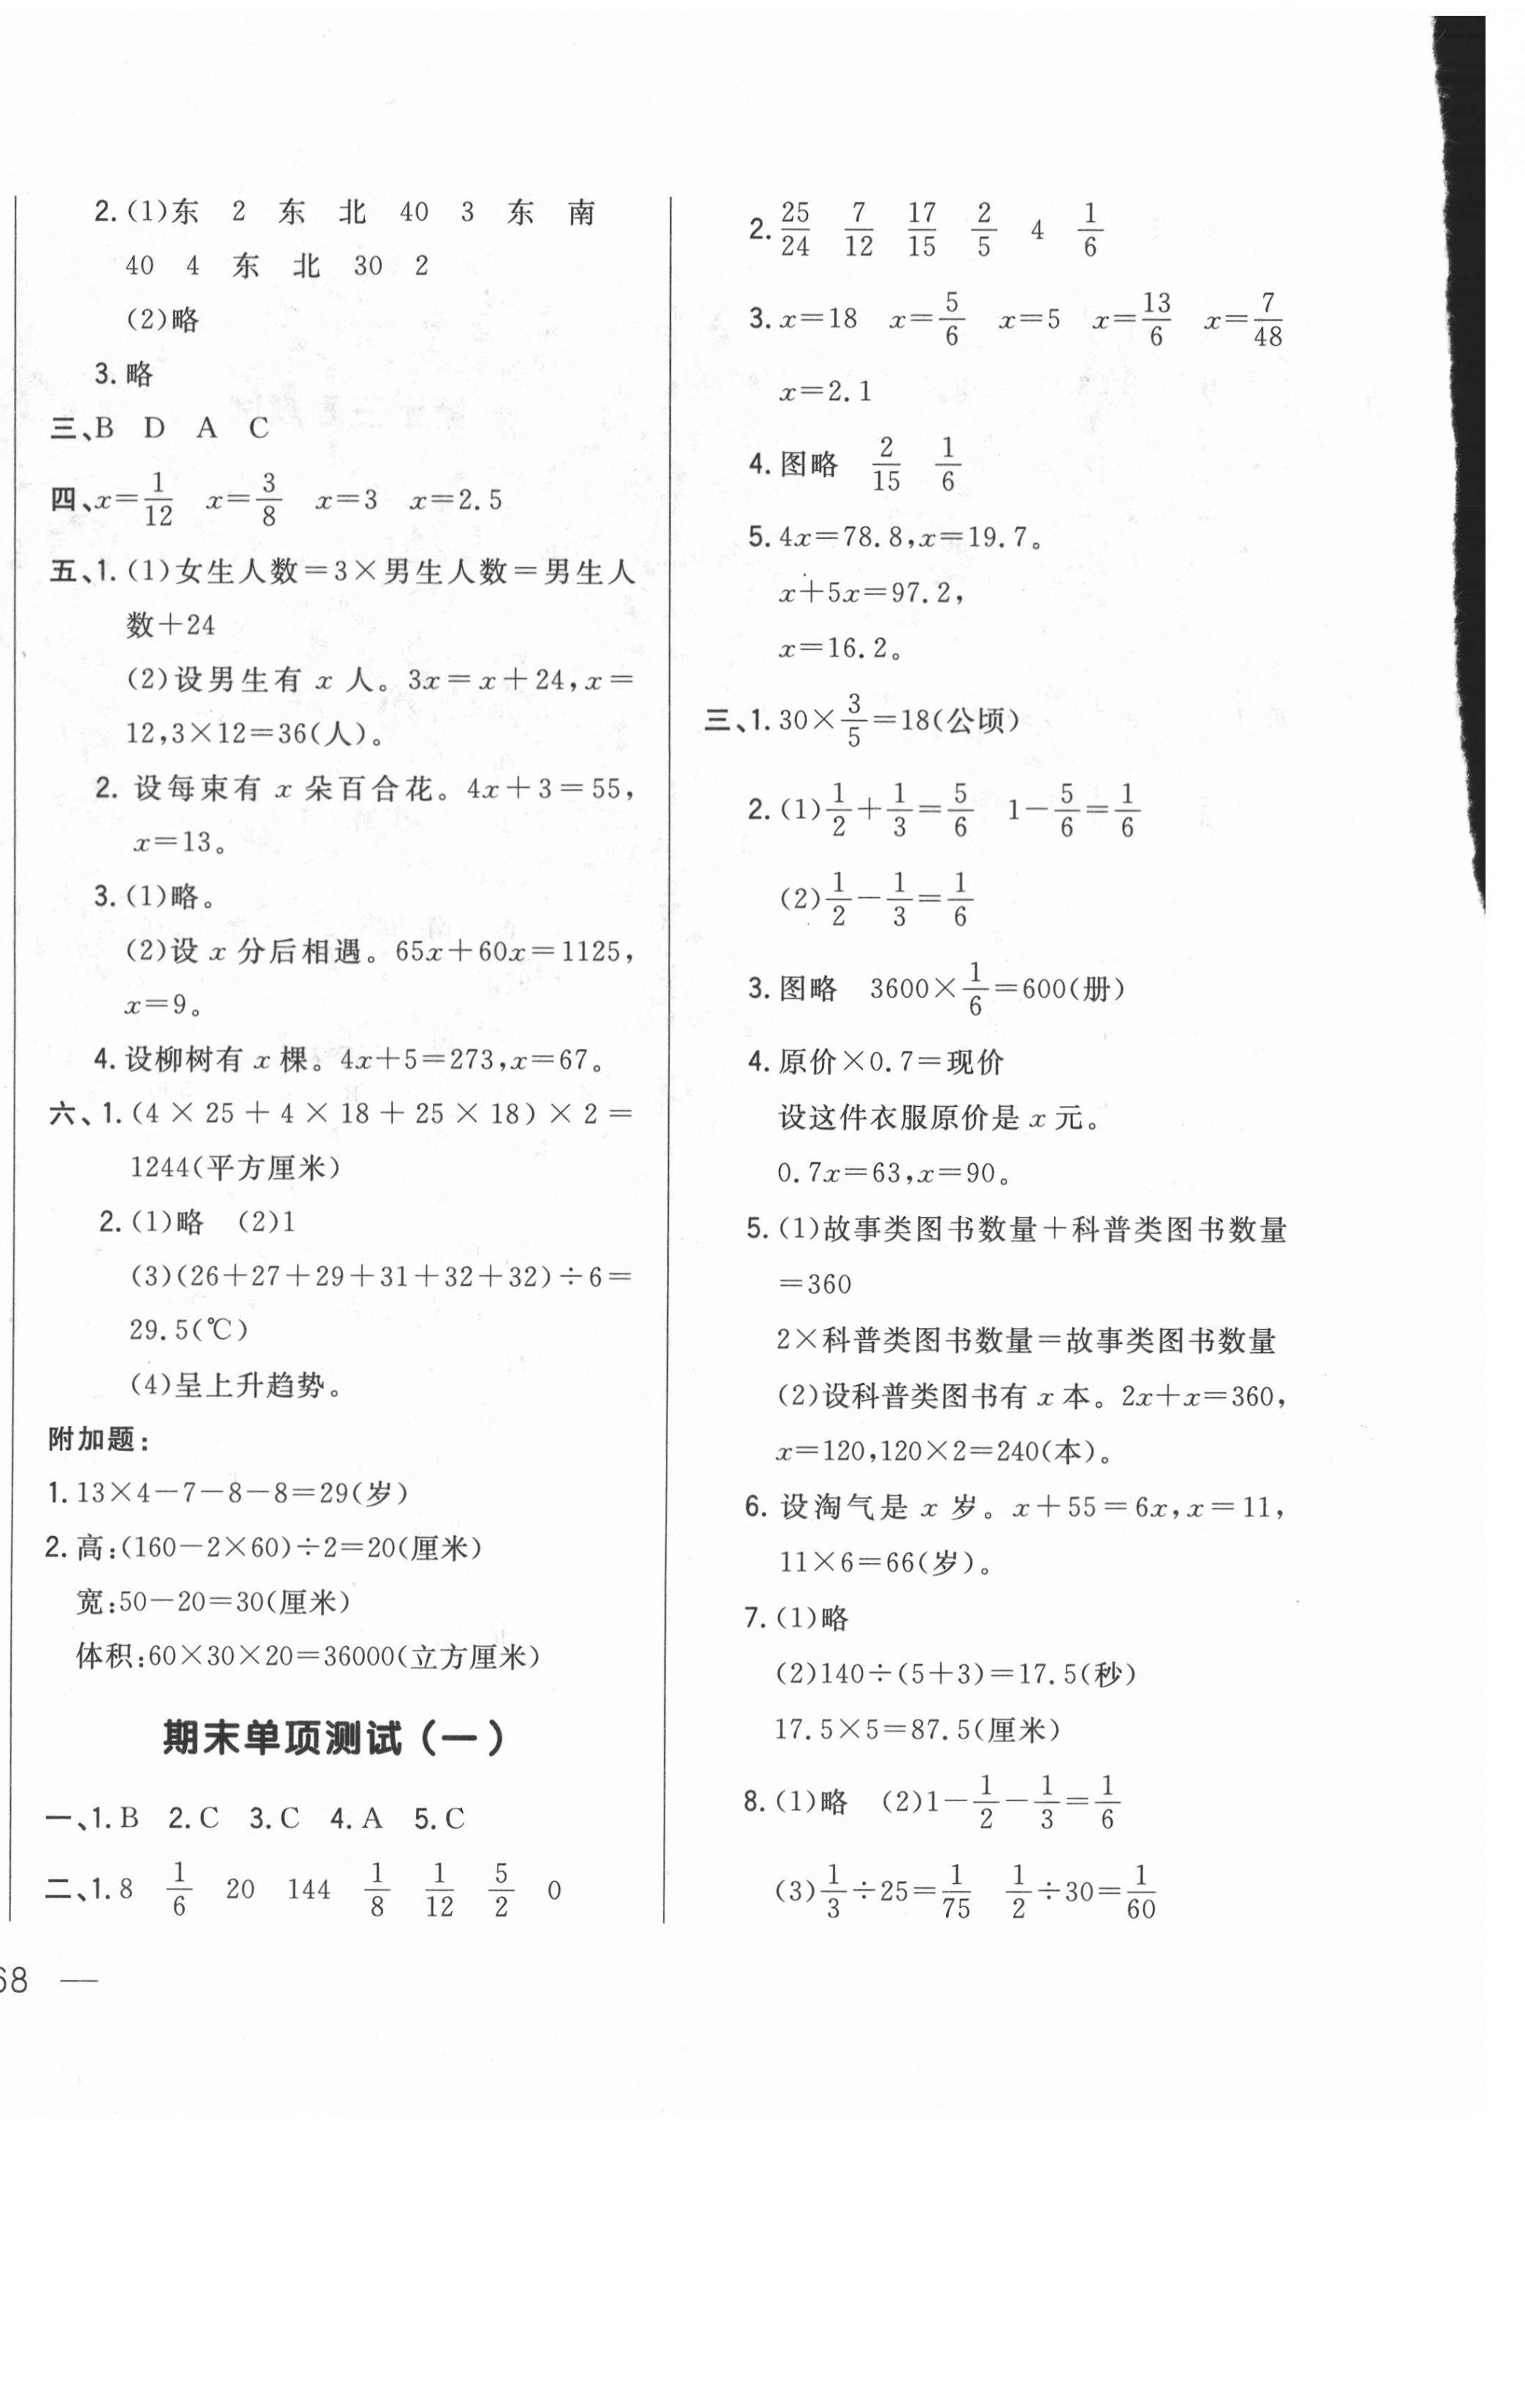 2. (1)东 2 东 北 40 3 东 南
40 4 东 北 30 2
(2)略
3. 略
三、B D A C
四、x=1/12 x=3/8 x=3 x=2.5
五、1. (1)女生人数=3×男生人数=男生人
数+24
(2)设男生有 x 人。3x=x+24,x=
12,3×12=36(人)。
2. 设每束有 x 朵百合花。4x+3=55,
x=13。
3. (1)略。
(2)设 x 分后相遇。65x+60x=1125,
x=9。
4. 设柳树有 x 棵。4x+5=273,x=67。
六、1. (4×25+4×18+25×18)×2=
1244(平方厘米)
2. (1)略 (2)1
(3)(26+27+29+31+32+32)÷6=
29.5(℃)
(4)呈上升趋势。
附加题:
1. 13×4-7-8-8=29(岁)
2. 高:(160-2×60)÷2=20(厘米)
宽:50-20=30(厘米)
体积:60×30×20=36000(立方厘米)
期末单项测试(一)
一、1. B 2. C 3. C 4. A 5. C
二、1. 8 1/6 20 144 1/8 1/12 5/2 0
2. 25/24 7/12 17/15 2/5 4 1/6
3. x=18 x=5/6 x=5 x=13/6 x=7/48
x=2.1
4. 图略 2/15 1/6
5. 4x=78.8,x=19.7。
x+5x=97.2,
x=16.2。
三、1. 30×3/5=18(公顷)
2. (1)1/2+1/3=5/6 1-5/6=1/6
(2)1/2-1/3=1/6
3. 图略 3600×1/6=600(册)
4. 原价×0.7=现价
设这件衣服原价是 x 元。
0.7x=63,x=90。
5. (1)故事类图书数量+科普类图书数量
=360
2×科普类图书数量=故事类图书数量
(2)设科普类图书有 x 本。2x+x=360,
x=120,120×2=240(本)。
6. 设淘气是 x 岁。x+55=6x,x=11,
11×6=66(岁)。
7. (1)略
(2)140÷(5+3)=17.5(秒)
17.5×5=87.5(厘米)
8. (1)略 (2)1-1/2-1/3=1/6
(3)1/3÷25=1/75 1/2÷30=1/60
68 —